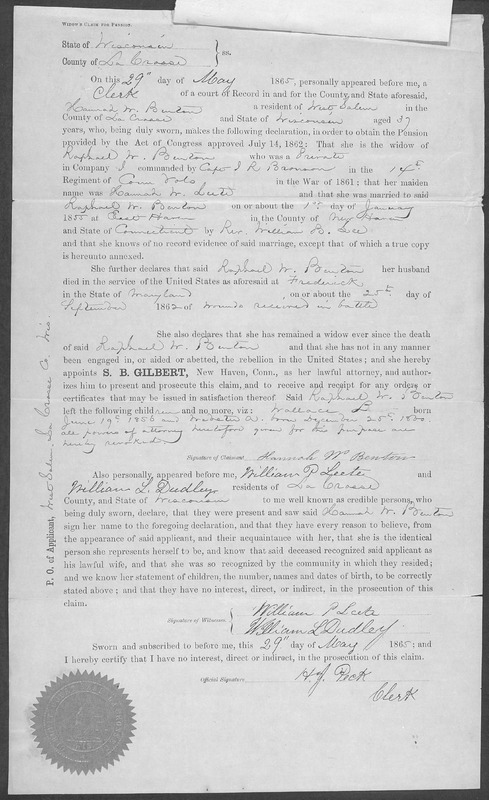 WIDOW'S CLAIM FOR PENSION.
State of Wisconsin
County of La Crosse } ss.
On this 29" day of May 1865, personally appeared before me, a
Clerk of a court of Record in and for the County and State aforesaid,
Hannah W. Benton a resident of West Salem in the
County of La Crosse and State of Wisconsin aged 37
years, who, being duly sworn, makes the following declaration, in order to obtain the Pension
provided by the Act of Congress approved July 14, 1862: That she is the widow of
Raphael W. Benton who was a Private
in Company I commanded by Capt I R Bronson in the 14th
Regiment of Conn Vols in the War of 1861; that her maiden
name was Hannah W. Leete and that she was married to said
Raphael W. Benton on or about the 1st day of January
1855 at East Haven in the County of New Haven
and State of Connecticut by Rev. William B. Lee
and that she knows of no record evidence of said marriage, except that of which a true copy
is hereunto annexed.
She further declares that said Raphael W. Benton her husband
died in the service of the United States as aforesaid at Frederick
in the State of Maryland, on or about the 25th day of
September 1862 of wounds received in battle
She also declares that she has remained a widow ever since the death
of said Raphael W. Benton and that she has not in any manner
been engaged in, or aided or abetted, the rebellion in the United States; and she hereby
appoints S. B. GILBERT, New Haven, Conn., as her lawful attorney, and author-
izes him to present and prosecute this claim, and to receive and receipt for any orders or
certificates that may be issued in satisfaction thereof. Said Raphael W. Benton
left the following children and no more, viz: Wallace L born
June 19th 1856 and Webster A. born December 25th 1860.
all powers of attorney heretofore given for this purpose are
hereby revoked
Signature of Claimant, Hannah W Benton
Also personally appeared before me, William P Leete and
William L. Dudley residents of La Crosse
County, and State of Wisconsin to me well known as credible persons, who
being duly sworn, declare, that they were present and saw said Hannah W. Benton
sign her name to the foregoing declaration, and that they have every reason to believe, from
the appearance of said applicant, and their acquaintance with her, that she is the identical
person she represents herself to be, and know that said deceased recognized said applicant as
his lawful wife, and that she was so recognized by the community in which they resided;
and we know her statement of children, the number, names and dates of birth, to be correctly
stated above; and that they have no interest, direct or indirect, in the prosecution of this
claim.
Signature of Witnesses, { William P Leete
William L Dudley
Sworn and subscribed to before me, this 29" day of May 1865; and
I hereby certify that I have no interest, direct or indirect, in the prosecution of this claim.
Official Signature, H. J. Peck
Clerk
P. O. of Applicant, West Salem, La Crosse Co. Wis.